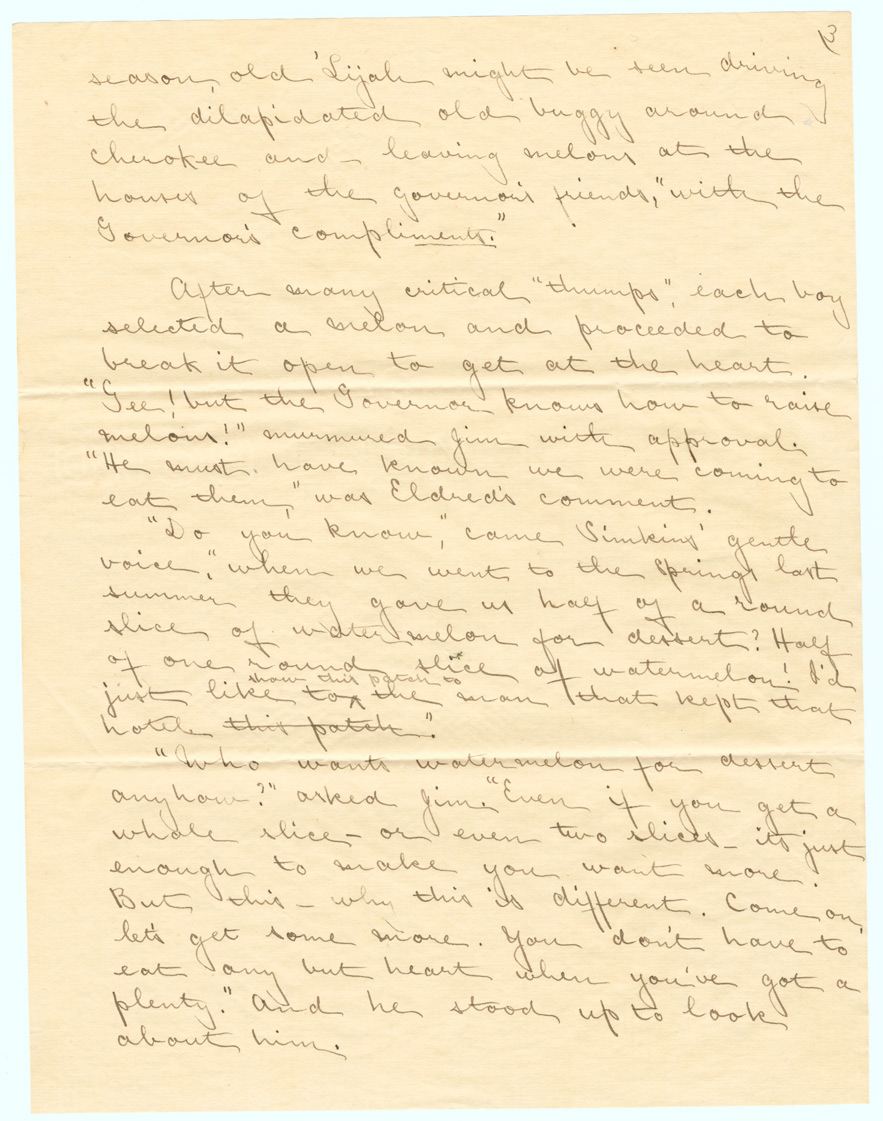 3
season, old 'Lijah might be seen driving
the dilapidated old buggy around
Cherokee and - leaving melons at the
houses of the governor's friends, "with the
Governor's compliments."
After many critical "thumps", each boy
selected a melon and proceeded to
break it open to get at the heart.
"Gee! but the Governor knows how to raise
melons!" murmured Jim with approval.
"He must have known we were coming to
eat them," was Eldred's comment.
"Do you know", came Simkins' gentle
voice, "when we went to the Springs last
summer they gave us half of a round
slice of watermelon for dessert? Half
of one round slice of watermelon! I'd
show this patch to
just like to the man that kept that
hotel this patch."
"Who wants watermelon for dessert
anyhow?" asked Jim. "Even if you get a
whole slice - or even two slices - it's just
enough to make you want more.
But this - why this is different. Come on,
let's get some more. You don't have to
eat any but heart when you've got a
plenty." And he stood up to look
about him.